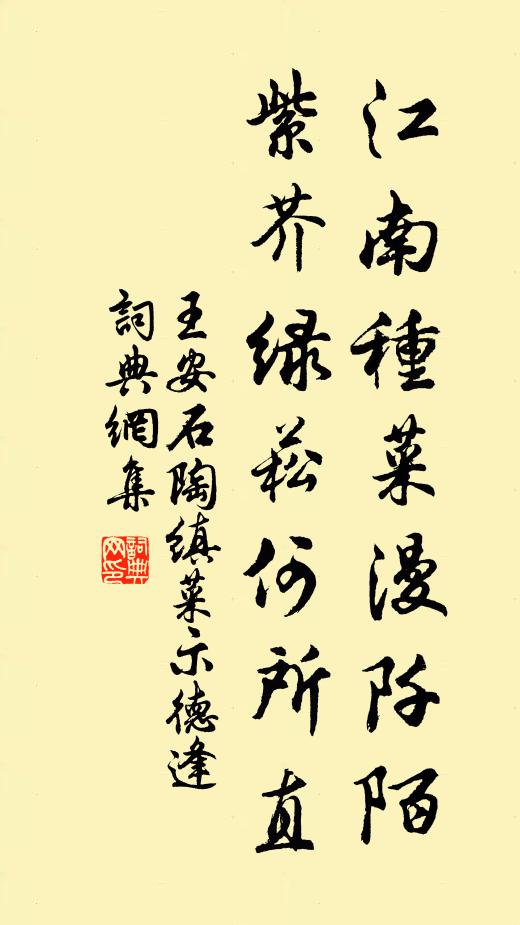 江南種菜漫阡陌
紫芥綠菘何所直
王安石陶縝菜示德逢
詞典網集
詞典網印